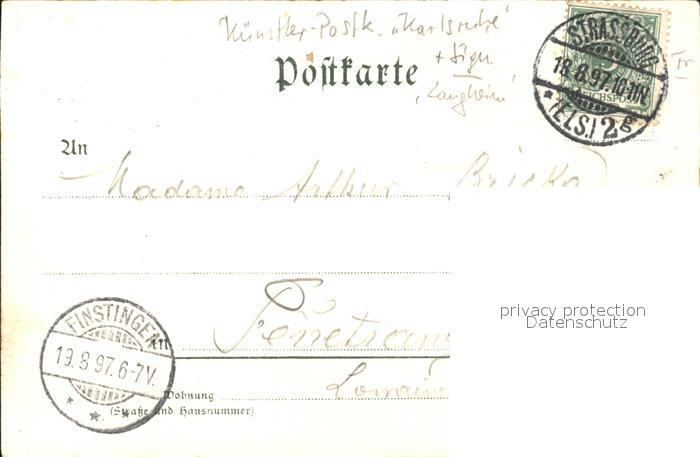 Künstler-Postk. „Karlsruhe"
+ Sign.
Postkarte
„Langhein"
STRASSBURG
18.8.97.10-11V.
* (ELS.) 2g
REICHSPOST
An
Madame Arthur Bricka
FINSTINGEN
19.8.97.6-7V.
in Fénétrang
privacy protection
Datenschutz
Wohnung Lorraine
(Straße und Hausnummer)